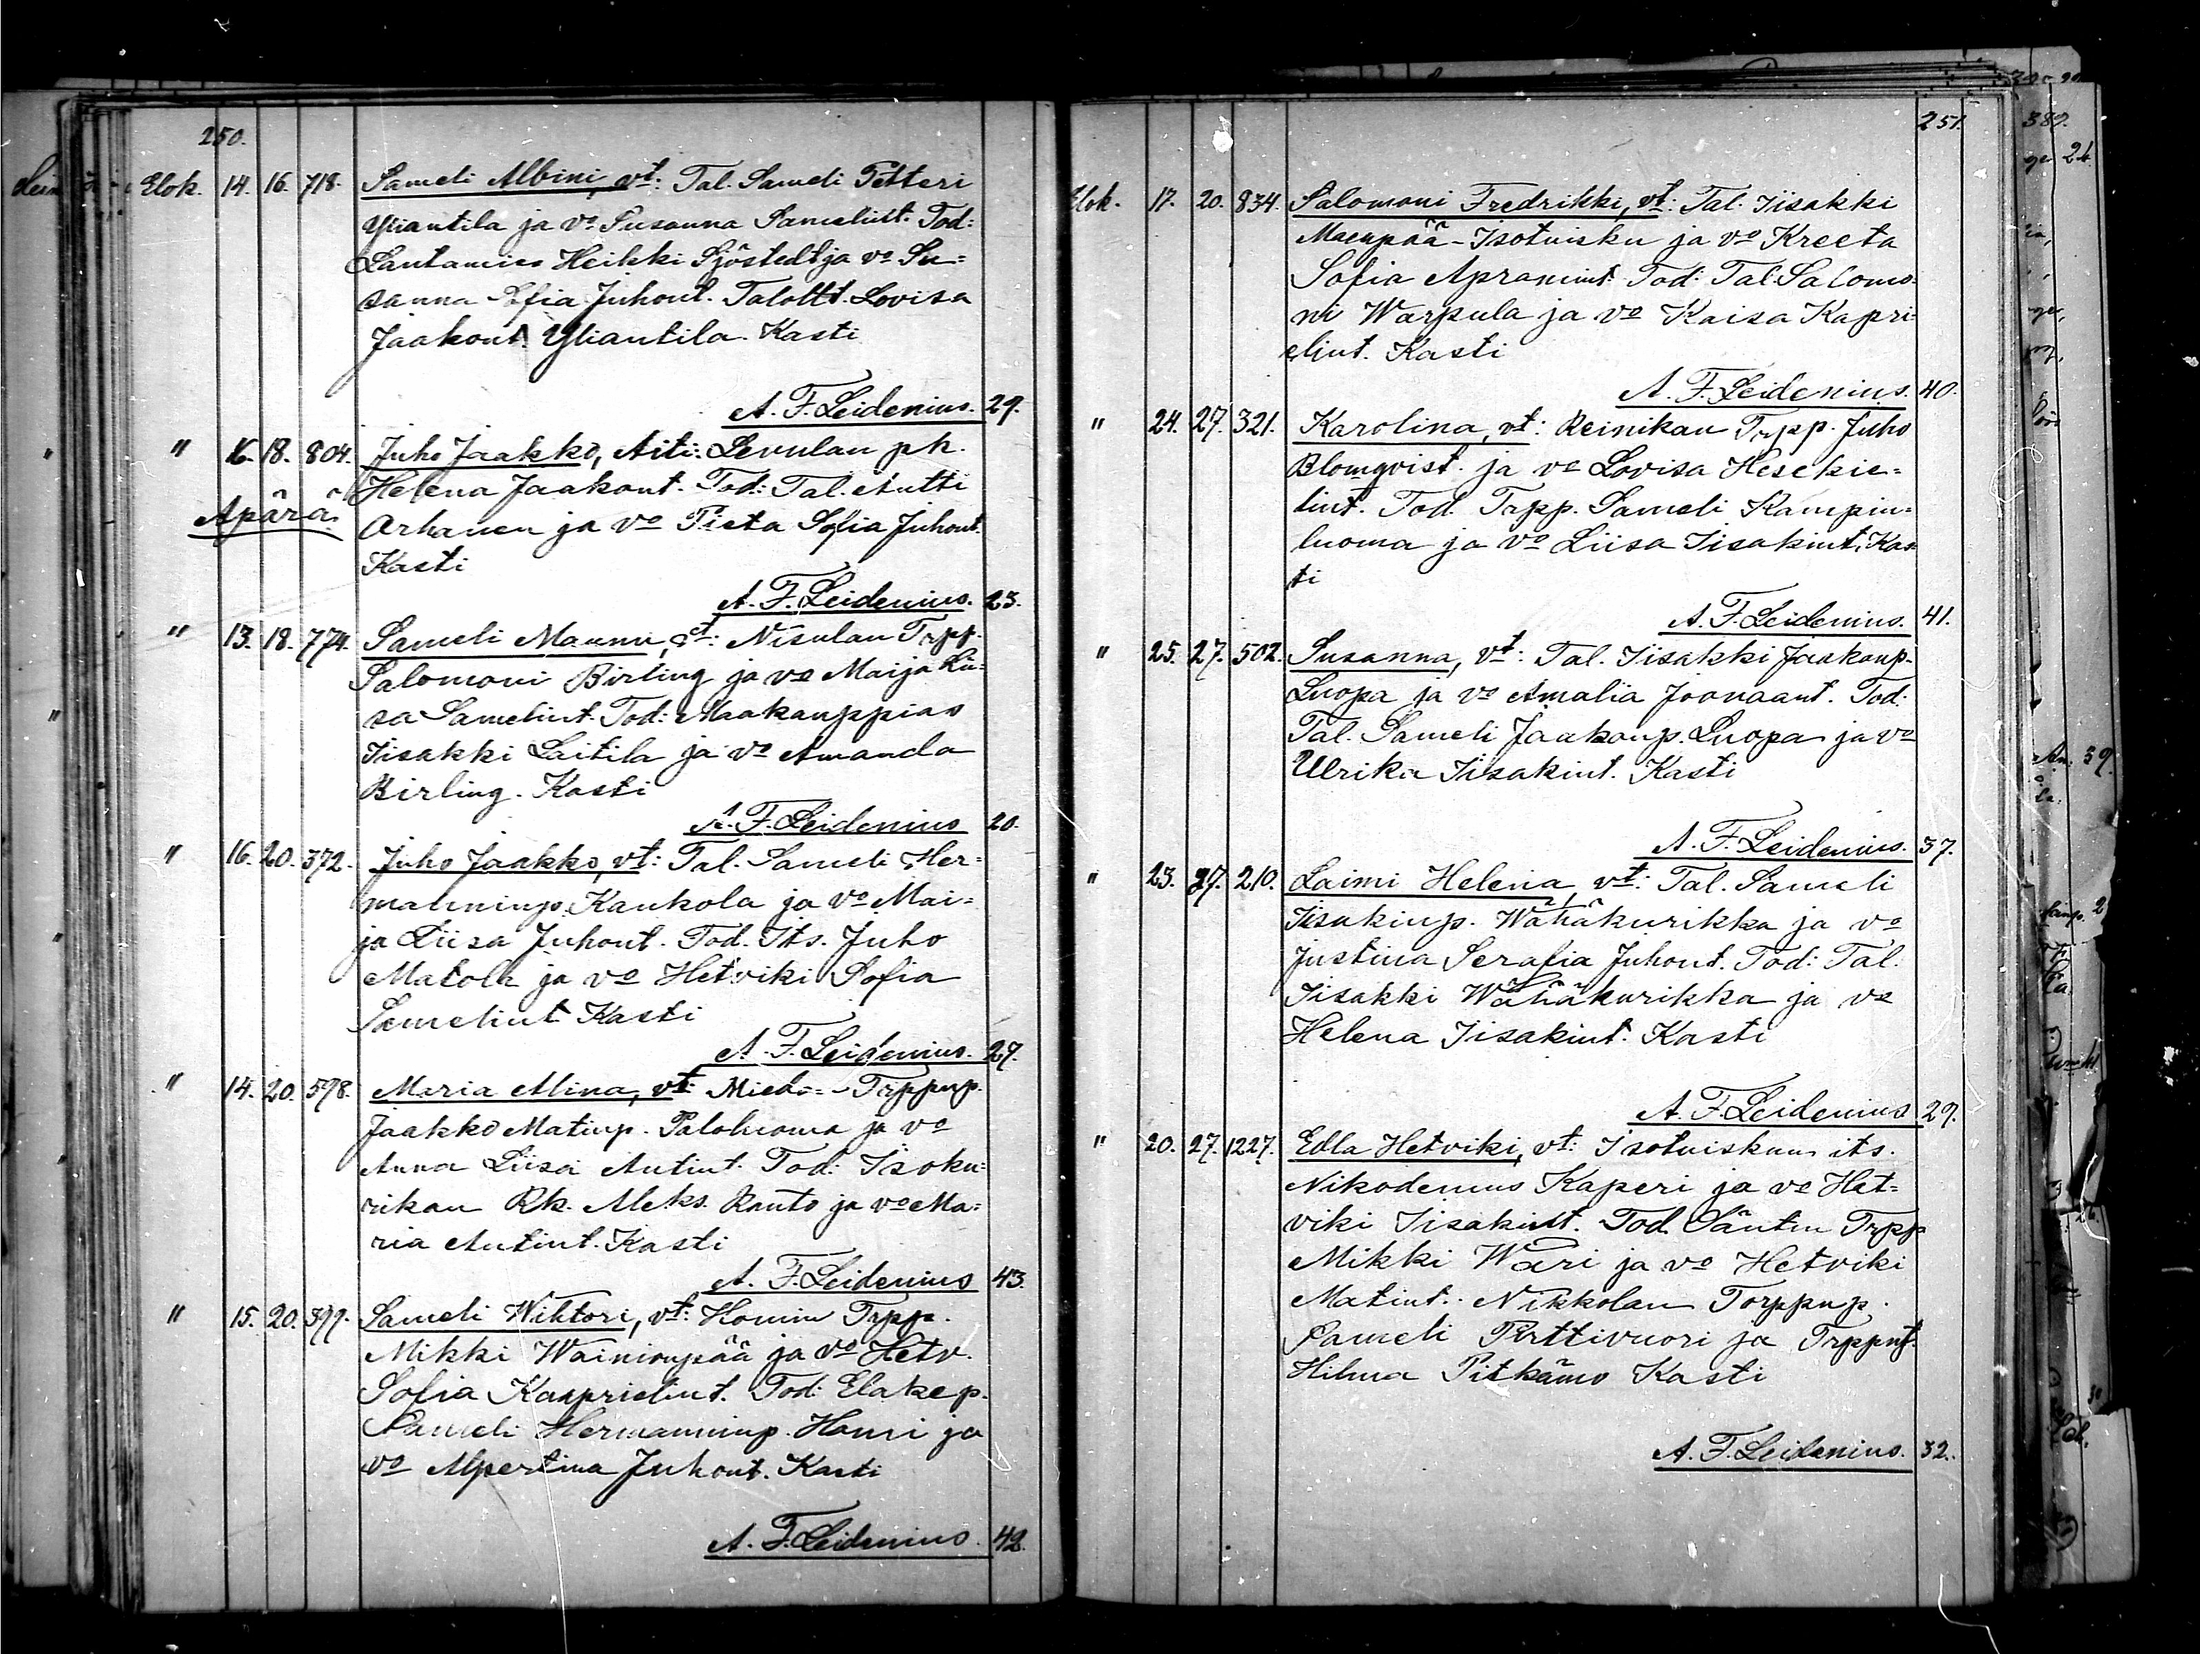 250.
Elok. 14. 16. 718. Sameli Albini, vt: Tal. Sameli Petteri
Yliantila ja vo Susanna Samelint. Tod:
Lautamies Heikki Sjöstedt ja vo Su=
sanna Sofia Juhont. Talolltt. Lovisa
Jaakont. Yliantila. Kasti
A. F. Leidenius. 29.
" 16. 18. 804. Juho Jaakko, Äiti: Levulan ph.
Helena Jaakont. Tod: Tal. Antti
Äpärä. Orhanen ja vo Pieta Sofia Juhont.
Kasti
A. F. Leidenius. 23.
" 13. 18. 774. Sameli Maunu, vt: Nisulan Trpp.
Salomoni Birling ja vo Maija Lii=
sa Samelint. Tod: Maakauppias
Iisakki Laitila ja vo Amanda
Birling. Kasti
A. F. Leidenius 20.
" 16. 20. 372. Juho Jaakko, vt: Tal. Sameli Her=
manninp. Kaukola ja vo Mai=
ja Liisa Juhont. Tod. Its. Juho
Matola ja vo Hetviki Sofia
Samelint Kasti
A. F. Leidenius. 27.
" 14. 20. 598. Maria Alina, vt: Miedo= Trppnp.
Jaakko Matinp. Paloluoma ja vo
Anna Liisa Antint. Tod: Isoku=
rikan Rk. Aleks. Ranto ja vo Ma=
ria Antint. Kasti
A. F. Leidenius 43.
" 15. 20. 399. Sameli Wihtori, vt: Homin Trpp.
Mikki Wainionpää ja vo Hetv.
Sofia Kaaprielint. Tod: Elakep.
Sameli Hermanninp. Homi ja
vo Alpertina Juhont. Kasti
A. F. Leidenius. 42.
251.
Elok. 17. 20. 834. Salomoni Fredrikki, vt: Tal. Iisakki
Maenpää-Isotuisku ja vo Kreeta
Sofia Apramint. Tod: Tal. Salomo=
ni Warpula ja vo Kaisa Kapri=
elint. Kasti
A. F. Leidenius. 40.
" 24. 27. 321. Karolina, vt: Reinikan Trpp. Juho
Blomqvist. ja vo Lovisa Hesekie=
lint. Tod. Trpp. Sameli Kampin=
luoma ja vo Liisa Iisakint. Kas=
ti
A. F. Leidenius. 41.
" 25. 27. 502. Susanna, vt: Tal. Iisakki Jaakonp.
Luopa ja vo Amalia Joonaant. Tod:
Tal. Sameli Jaakonp. Luopa ja vo
Ulrika Iisakint. Kasti
A. F. Leidenius. 37.
" 23. 27. 210. Laimi Helena, vt: Tal. Sameli
Iisakinp. Wähäkurikka ja vo
Justina Serafia Juhont. Tod: Tal.
Iisakki Wähäkurikka ja vo
Helena Iisakint. Kasti
A. F. Leidenius 29.
" 20. 27. 1227. Edla Hetviki, vt: Isotuiskun its.
Nikodemus Kaperi ja vo Het=
viki Iisakint. Tod. Säntin Trpp
Mikki Wäri ja vo Hetviki
Matint. Nikkolan Torppnp.
Sameli Pirttivuori ja Trppnt.
Hilma Pitkämo Kasti
A. F. Leidenius. 32.